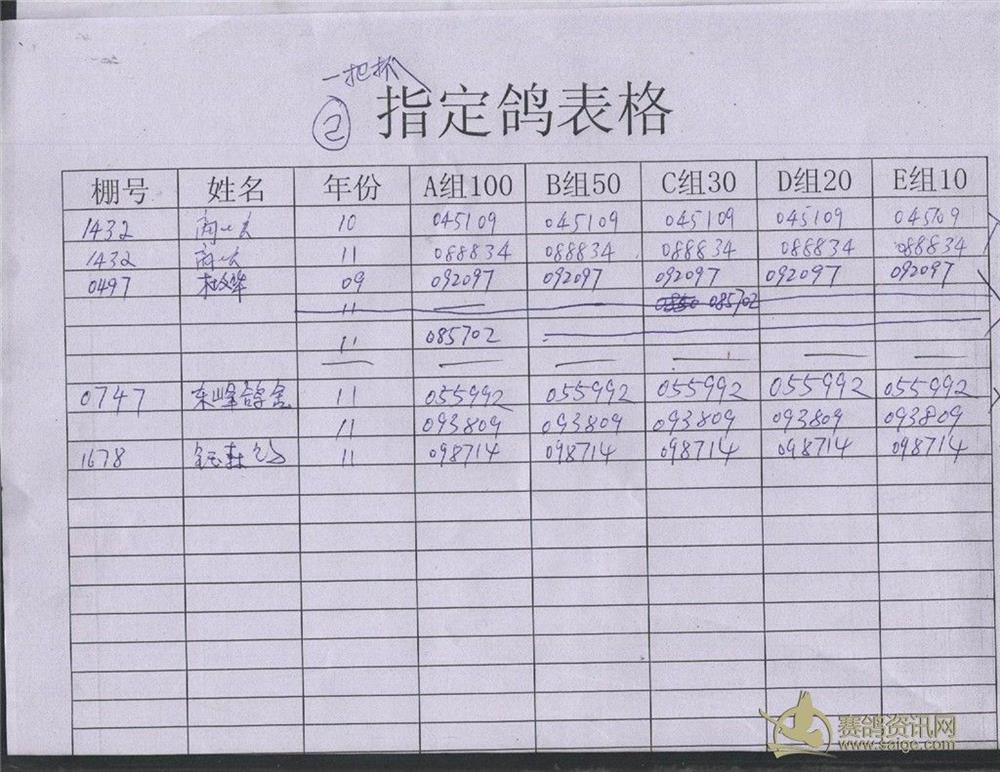 一把抓
② 指定鸽表格
棚号 姓名 年份 A组100 B组50 C组30 D组20 E组10
1432 10 045109 045109 045109 045109 045109
1432 11 088834 088834 088834 088834 088834
0497 09 092097 092097 092097 092097 092097
11 085702
11 085702
0747 东峰鸽舍 11 055992 055992 055992 055992 055992
11 093809 093809 093809 093809 093809
1678 11 098714 098714 098714 098714 098714
赛鸽资讯网
www.saige.com